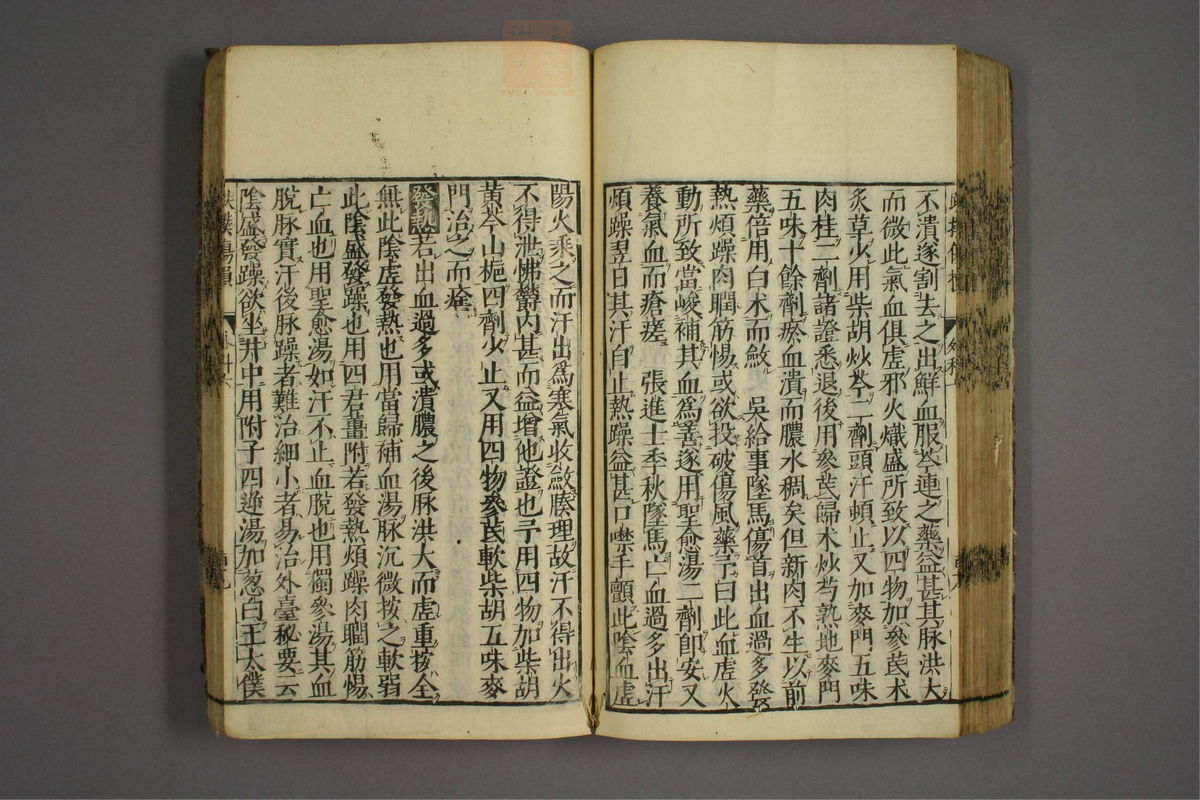 不潰遂割去之出鮮血服芩連之藥益甚其脉洪大
而微此氣血俱虛邪火熾盛所致以四物加參芪术
炙草火用柴胡炒芩二劑頭汗頓止又加麥門五味
肉桂二劑諸證悉退後用參芪歸术炒芍熟地麥門
五味十餘劑瘀血潰而膿水稠矣但新肉不生以前
藥倍用白术而斂　吳給事墜馬傷首出血過多發
熱煩躁肉瞤筋惕或欲投破傷風藥予曰此血虛火
動所致當峻補其血爲善遂用聖愈湯二劑卽安又
養氣血而瘡瘥　張進士季秋墜馬亡血過多出汗
煩躁翌日其汗自止熱躁益甚口噤手顫此陰血虛
陽火乘之而汗出爲寒氣收斂腠理故汗不得出火
不得泄怫鬱内甚而益增他證也予用四物加柴胡
黃芩山梔四劑少止又用四物參芪軟柴胡五味麥
門治之而痊
發熱若出血過多或潰膿之後脉洪大而虛重按全
無此陰虛發熱也用當歸補血湯脉沉微按之軟弱
此陰盛發躁也用四君薑附若發熱煩躁肉瞤筋惕
亡血也用聖愈湯如汗不止血脫也用獨參湯其血
脫脉實汗後脉躁者難治細小者易治外臺秘要云
陰盛發躁欲坐井中用附子四逆湯加葱白王太僕